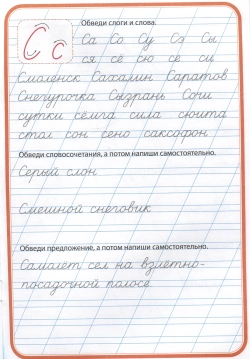 Обведи слоги и слова.
С с
Са Со Су Сэ Сы
ся сё сю се си
Смоленск Сахалин Саратов
Снегурочка Сызрань Сочи
сутки сёмга сила сюита
стол сон сено саксофон
Обведи словосочетания, а потом напиши самостоятельно.
Серый слон
Смешной снеговик
Обведи предложение, а потом напиши самостоятельно.
Самолёт сел на взлётно-
посадочной полосе.